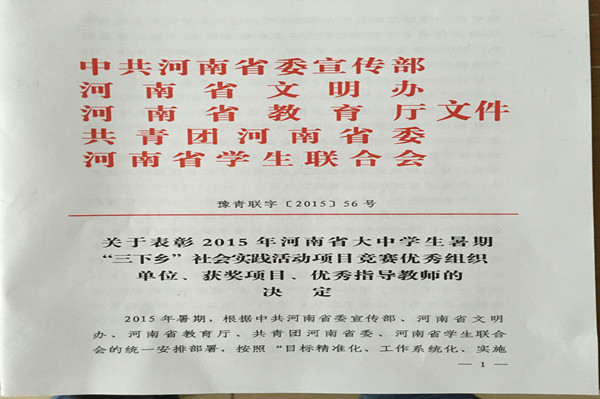 中共河南省委宣传部
河南省文明办
河南省教育厅文件
共青团河南省委
河南省学生联合会
豫青联字〔2015〕56号
关于表彰2015年河南省大中学生暑期
“三下乡”社会实践活动项目竞赛优秀组织
单位、获奖项目、优秀指导教师的
决定
2015年暑期，根据中共河南省委宣传部、河南省文明
办、河南省教育厅、共青团河南省委、河南省学生联合
会的统一安排部署，按照“目标精准化、工作系统化、实施
— 1 —